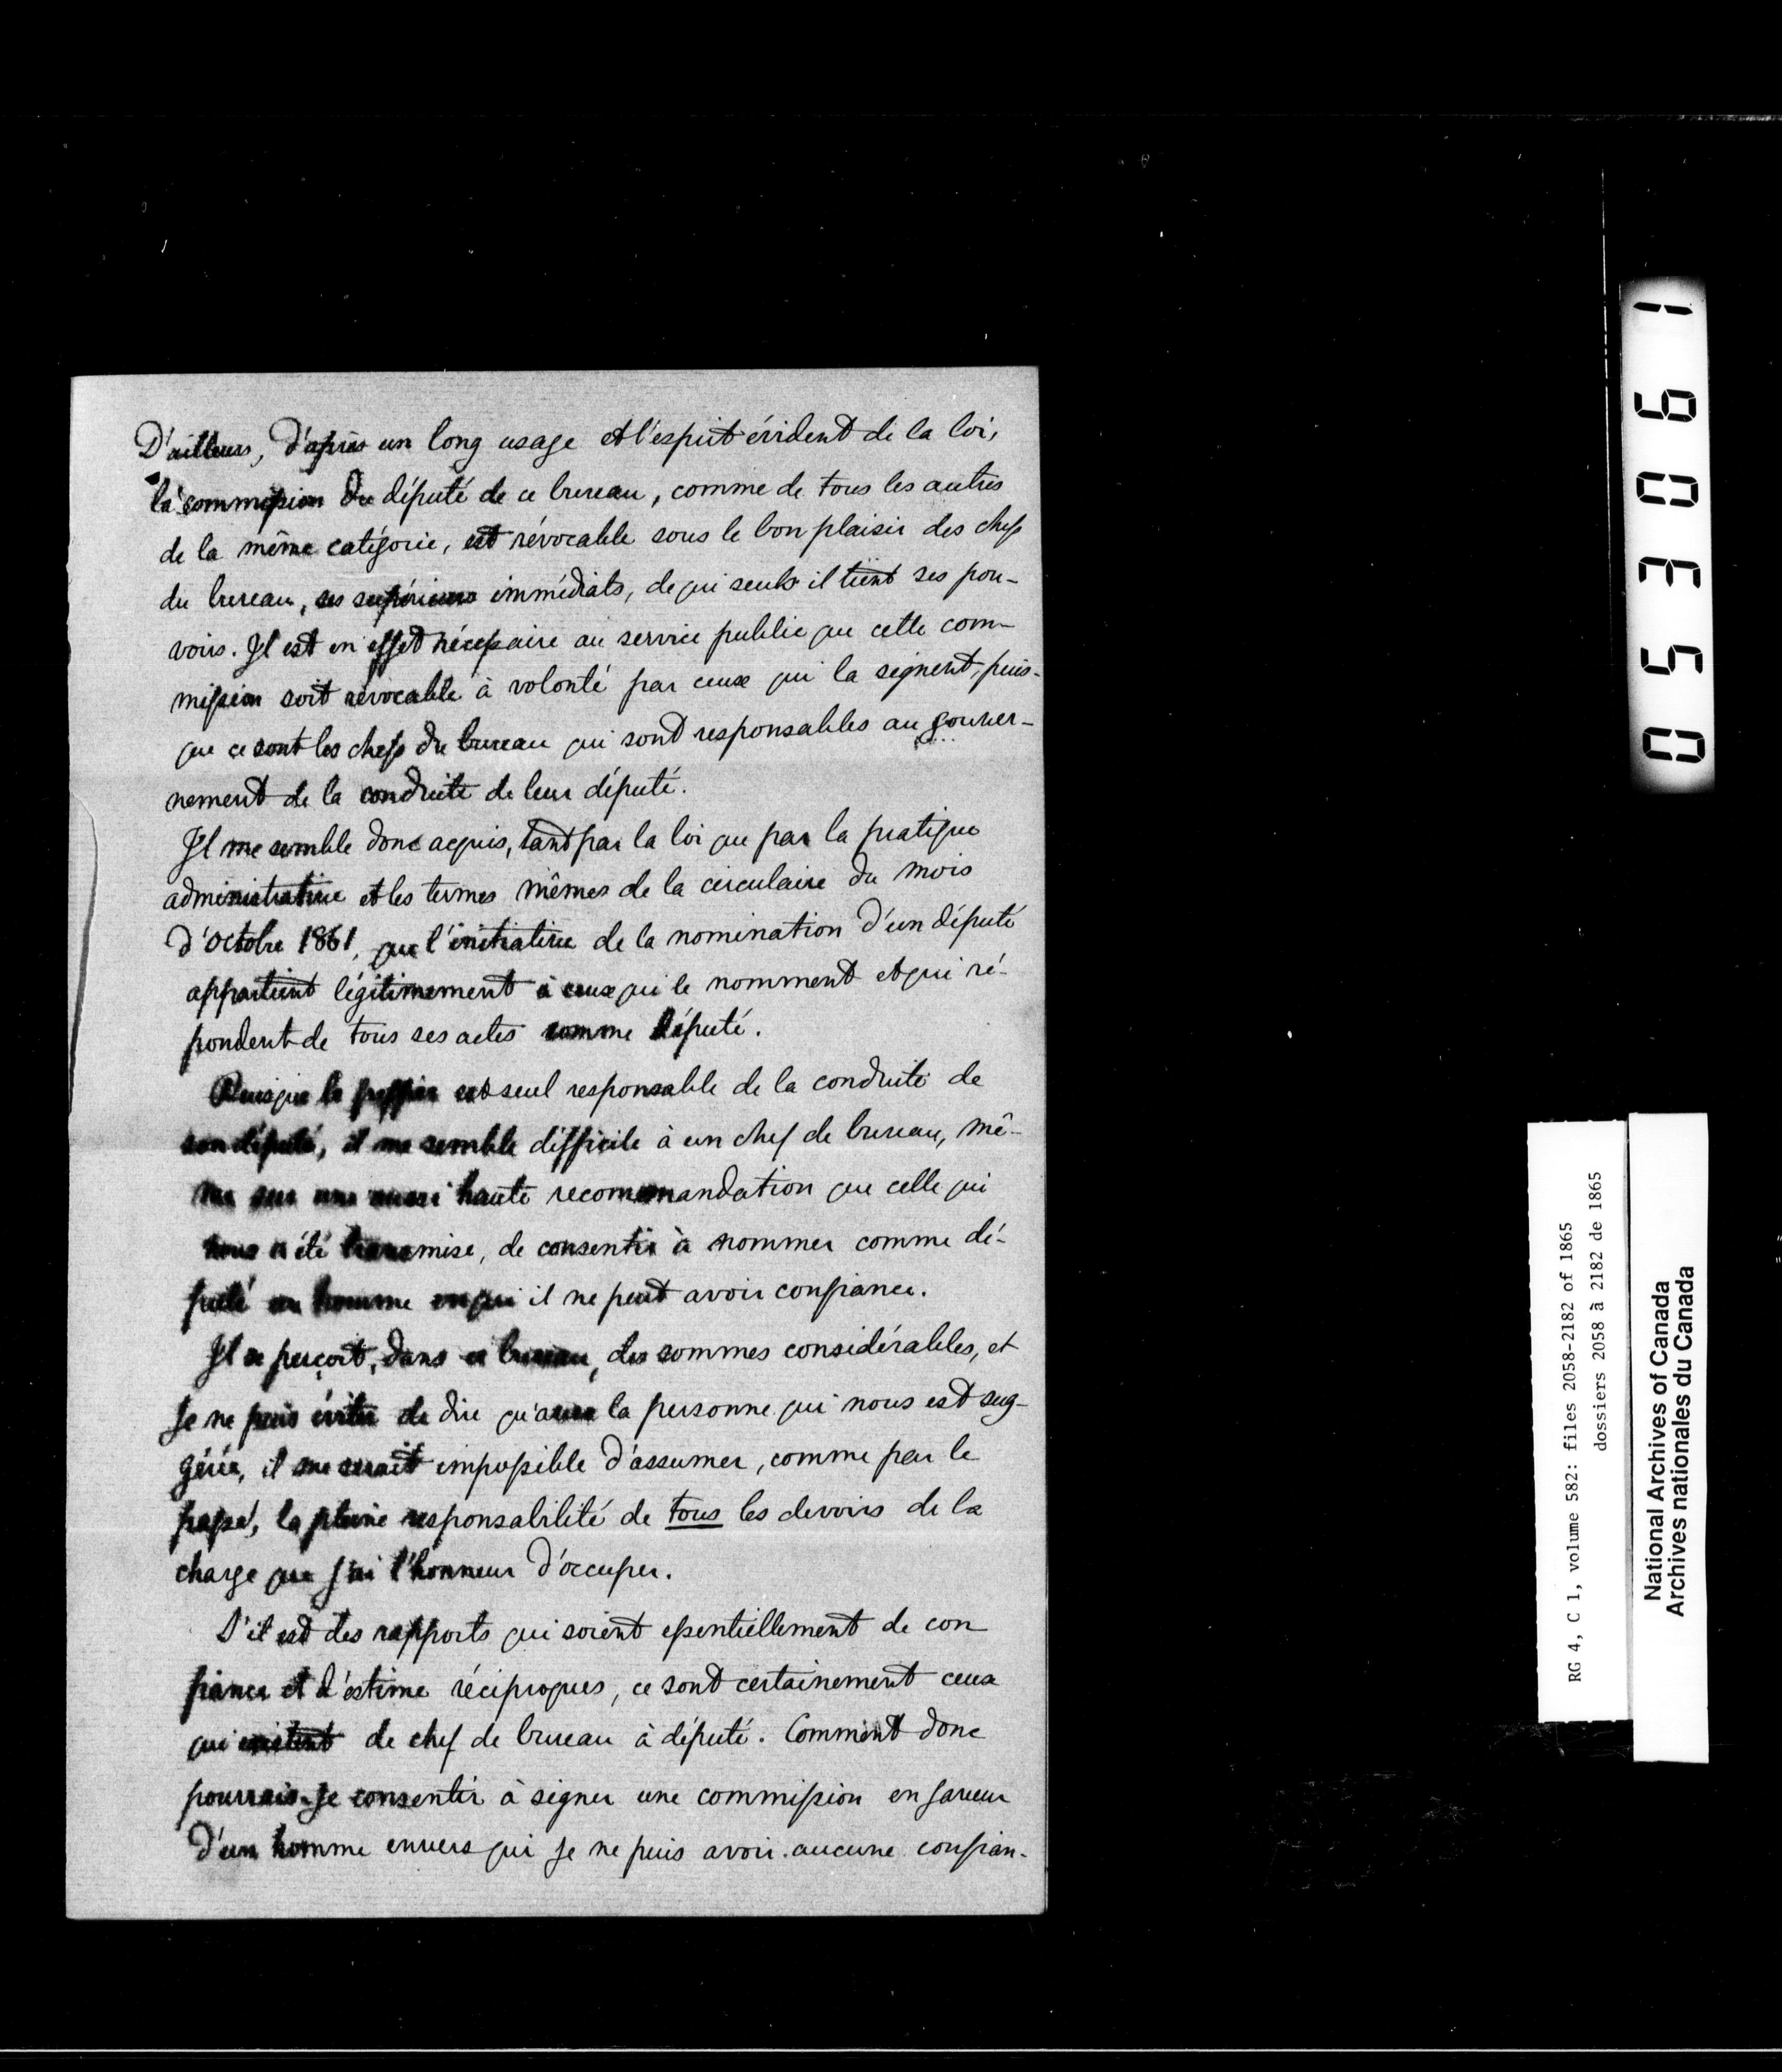 D'ailleurs, d'après un long usage et l'esprit évident de la loi,
la commission du député de ce bureau, comme de tous les autres
de la même catégorie, est révocable sous le bon plaisir des chefs
du bureau, ses supérieurs immédiats, de qui seuls il tient ses pou-
voirs. Il est en effet nécessaire au service public que cette com-
mission soit révocable à volonté par ceux qui la signent, puis-
que ce sont les chefs du bureau qui sont responsables au gouver-
nement de la conduite de leur député.
Il me semble donc acquis, tant par la loi que par la pratique
administrative et les termes mêmes de la circulaire du mois
d'octobre 1861, que l'initiative de la nomination d'un député
appartient légitimement à ceux qui le nomment et qui ré-
pondent de tous ses actes comme député.
Puisque le greffier est seul responsable de la conduite de
son député, il me semble difficile à un chef de bureau, mê-
me sur une aussi haute recommandation que celle qui
nous a été transmise, de consentir à nommer comme dé-
puté un homme en qui il ne peut avoir confiance.
Il se perçoit, dans ce bureau, des sommes considérables, et
je ne puis éviter de dire qu'avec la personne qui nous est sug-
gérée, il me serait impossible d'assumer, comme par le
passé, la pleine responsabilité de tous les devoirs de la
charge que j'ai l'honneur d'occuper.
S'il est des rapports qui soient essentiellement de con
fiance et d'estime réciproques, ce sont certainement ceux
qui existent de chef de bureau à député. Comment donc
pourrais-je consentir à signer une commission en faveur
d'un homme envers qui je ne puis avoir aucune confian-
053061
RG 4, C 1, volume 582: files 2058-2182 of 1865
dossiers 2058 à 2182 de 1865
National Archives of Canada
Archives nationales du Canada